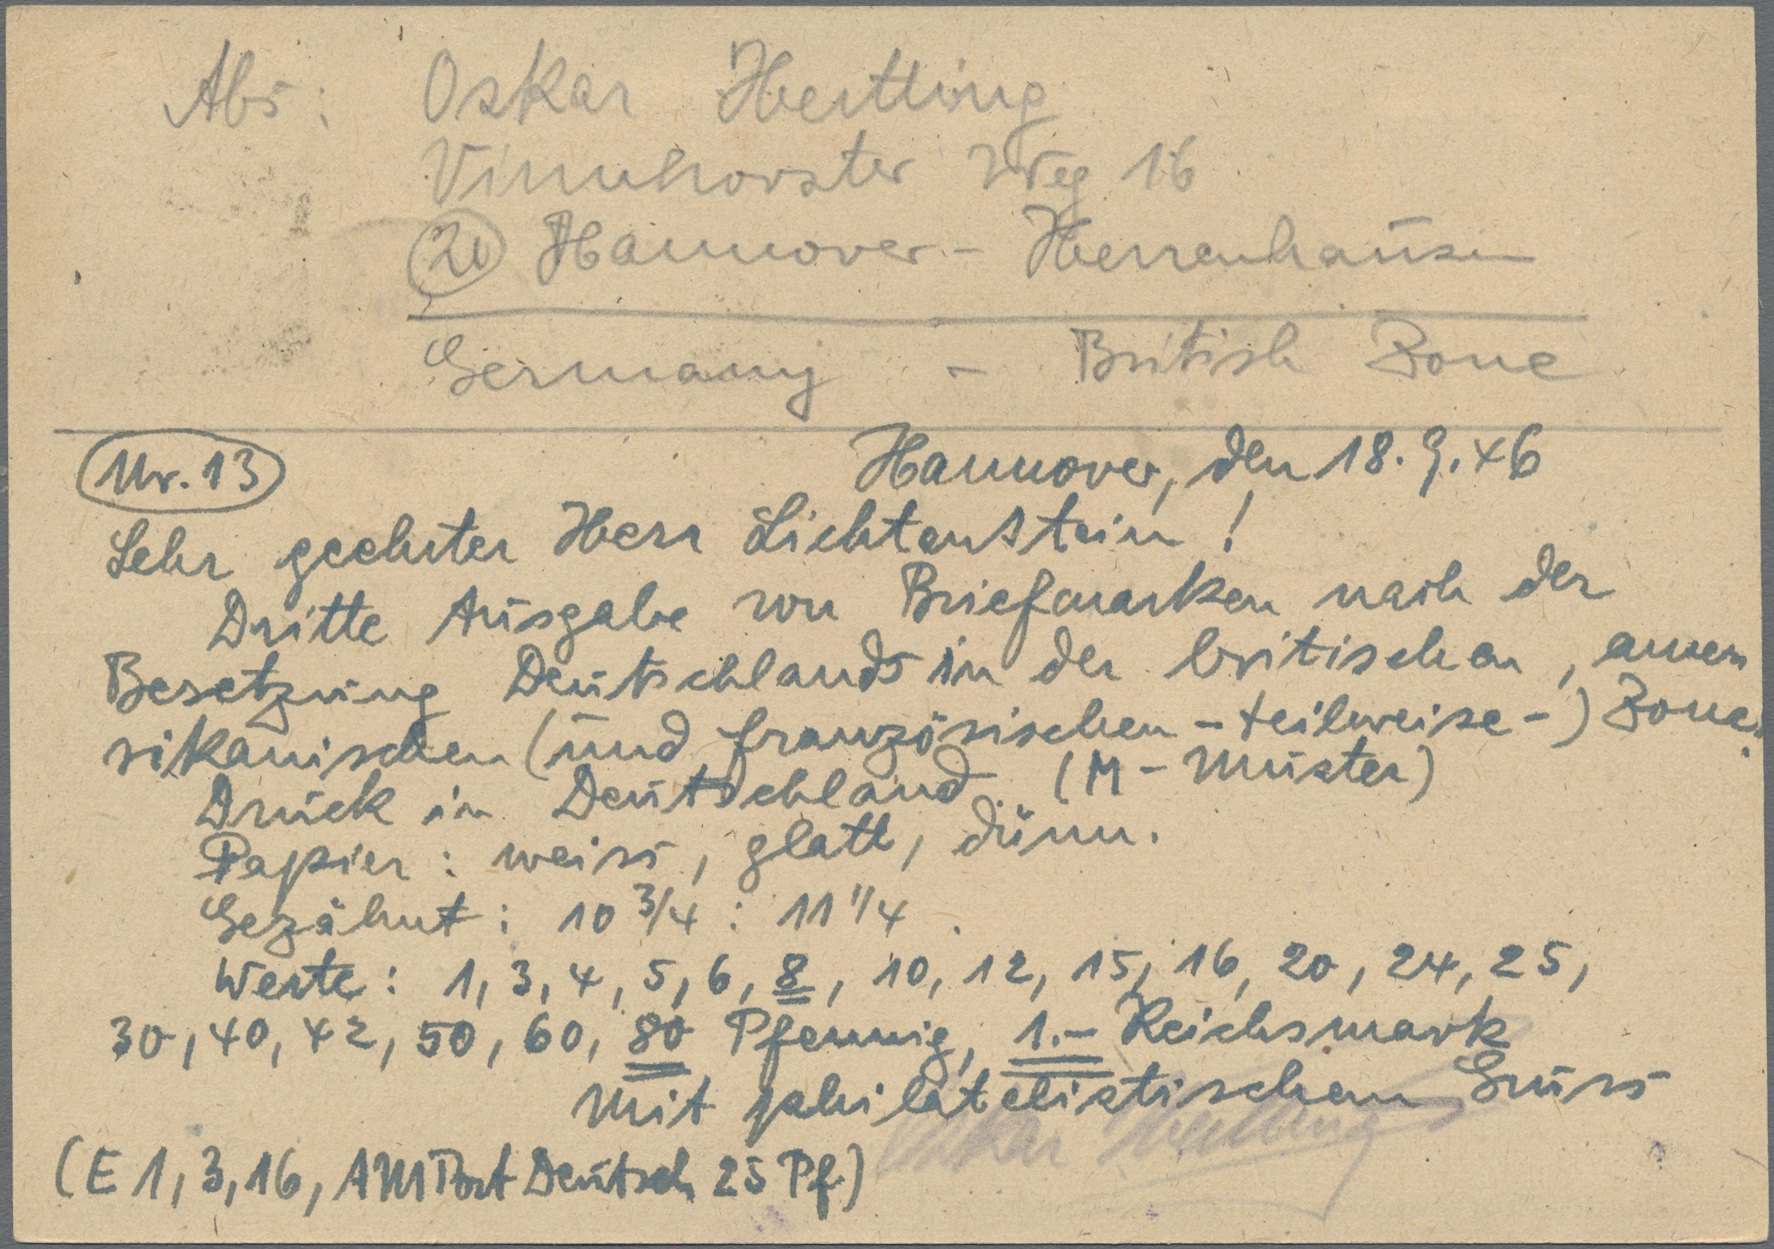 Abs: Oskar Hertting
Vinnhorster Weg 16
(20) Hannover - Herrenhausen
Germany - British Zone
Nr. 13
Hannover, den 18.9.46
Sehr geehrter Herr Lichtenstein!
Dritte Ausgabe von Briefmarken nach der
Besetzung Deutschlands in der britischen, ame
rikanischen (und französischen - teilweise -) Zone.
Druck in Deutschland. (M - Muster)
Papier: weiss, glatt, dünn.
Gezähnt: 10 3/4 : 11 1/4.
Werte: 1, 3, 4, 5, 6, 8, 10, 12, 15, 16, 20, 24, 25,
30, 40, 42, 50, 60, 80 Pfennig, 1.- Reichsmark
Mit philatelistischem Gruss
Oskar Hertting
(E 1, 3, 16, AM Post Deutsch 25 Pf)